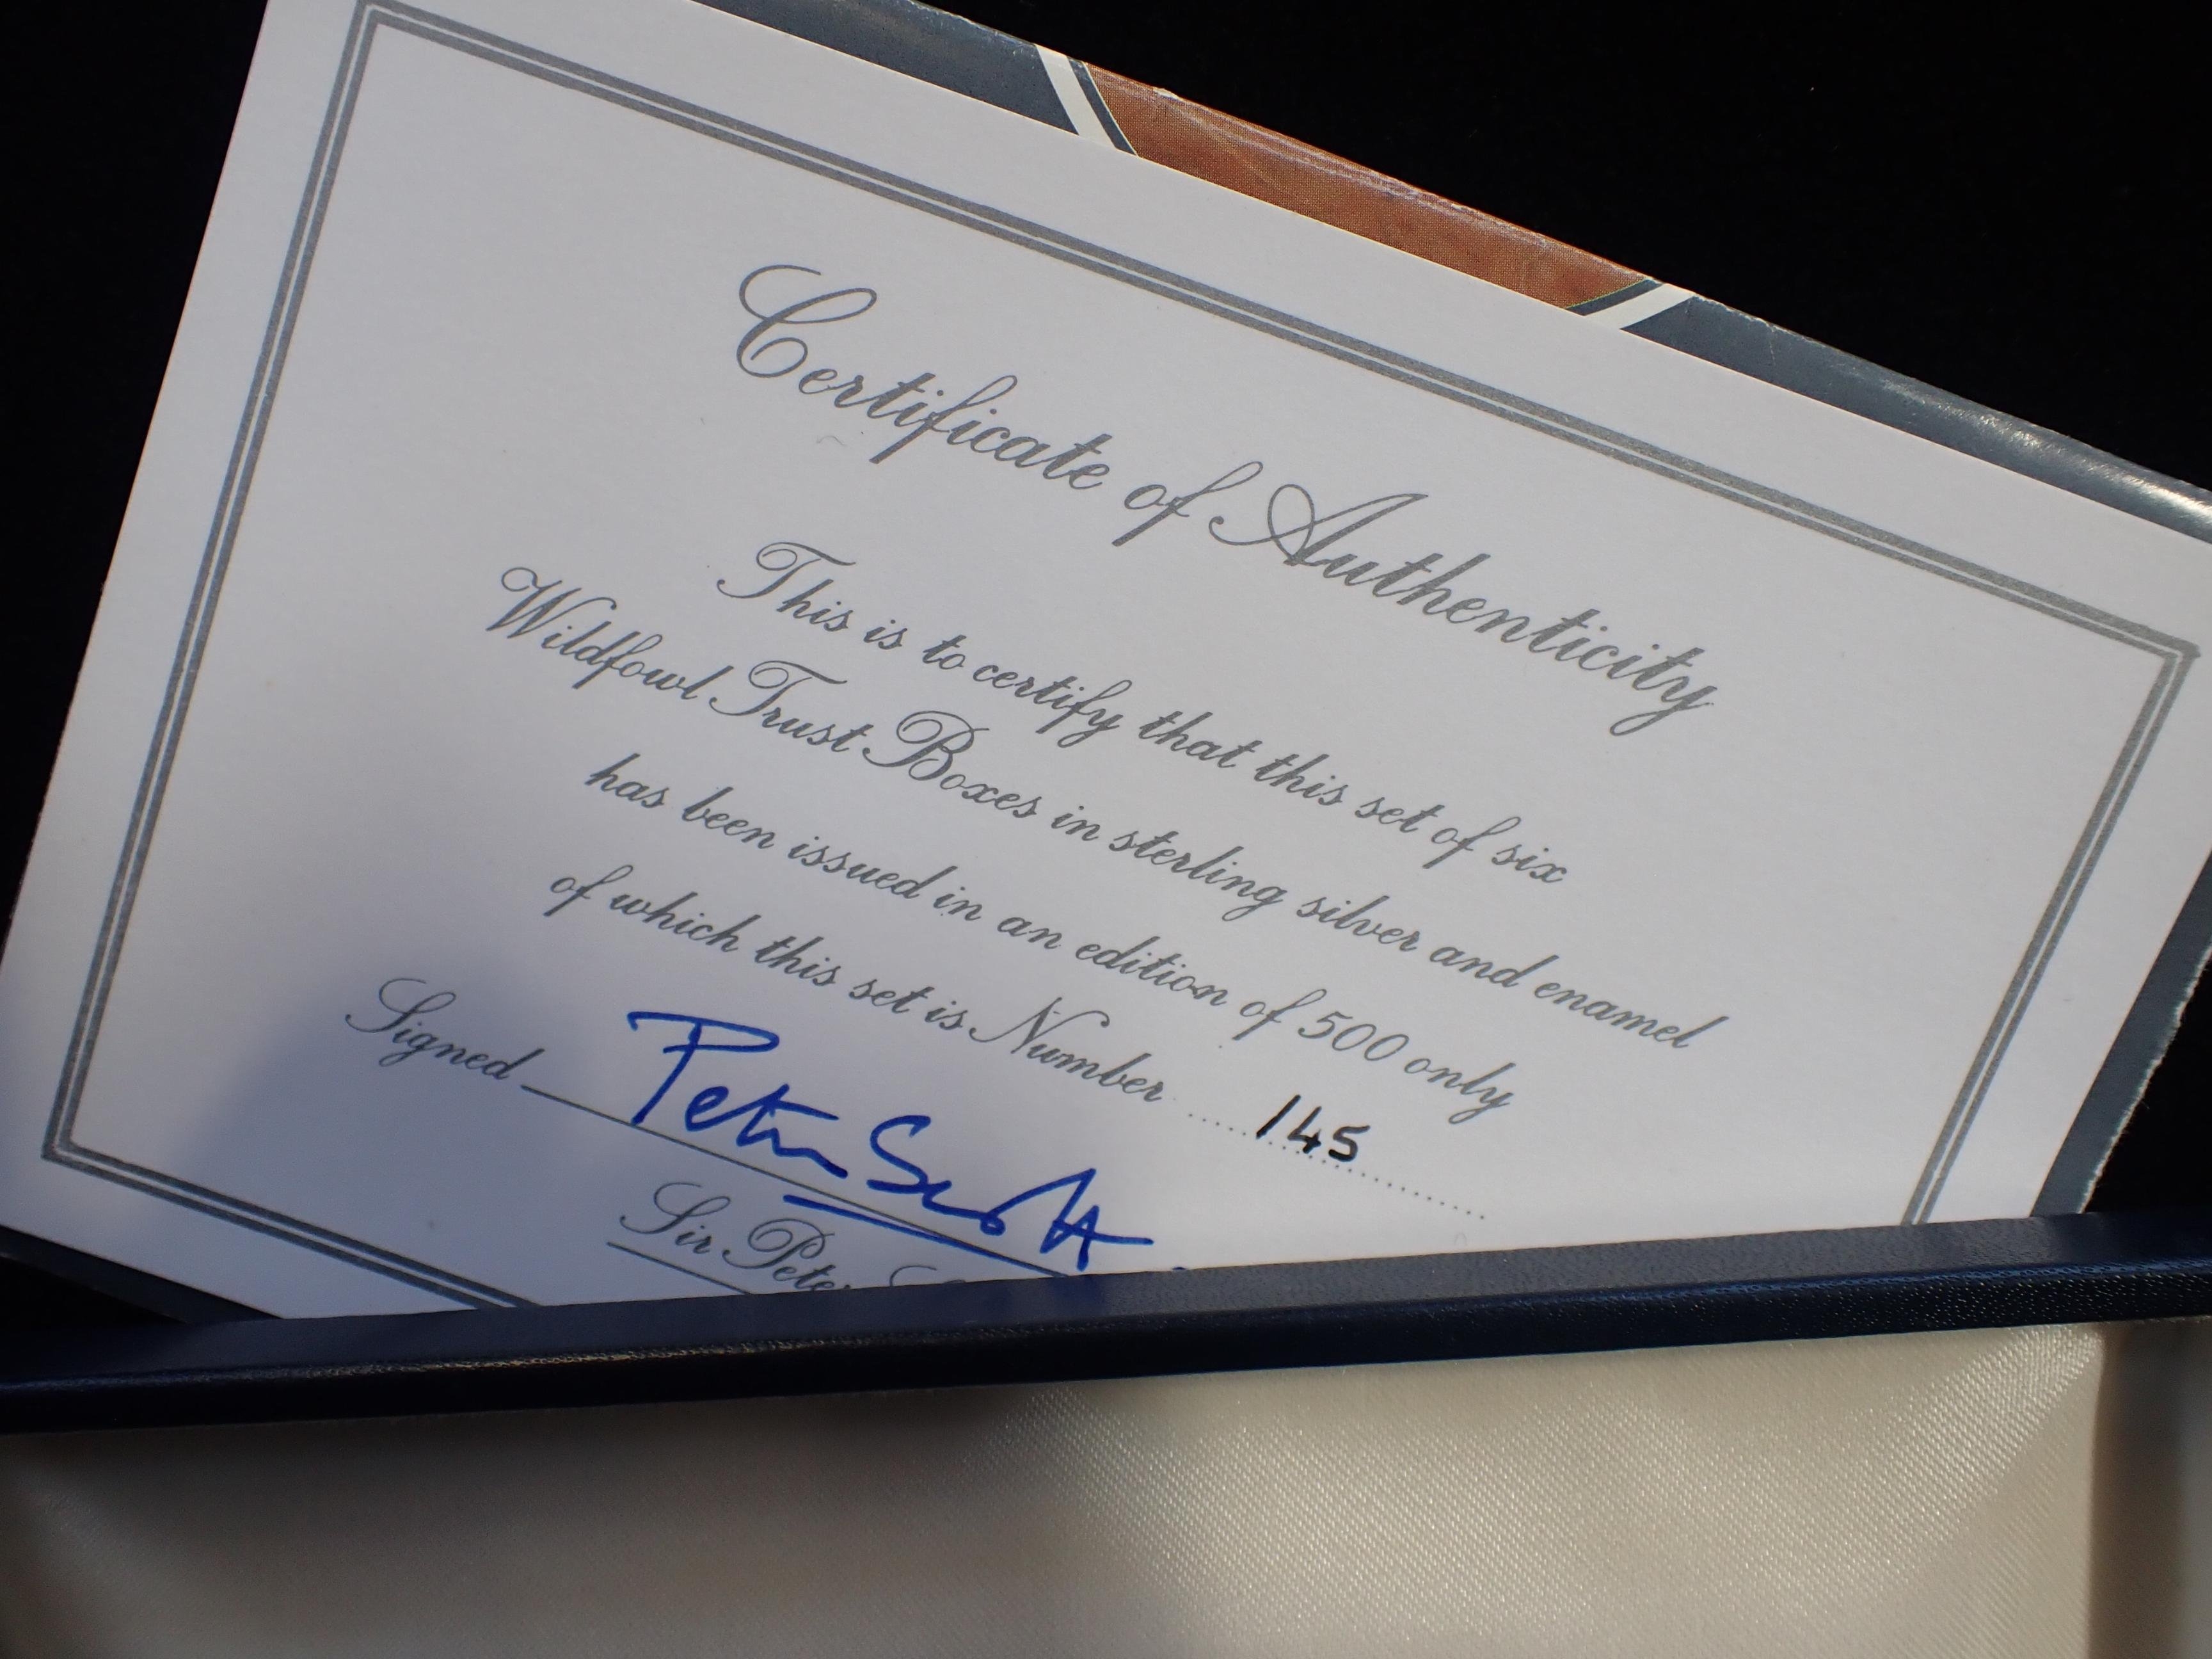 Certificate of Authenticity
This is to certify that this set of six
Wildfowl Trust Boxes in sterling silver and enamel
has been issued in an edition of 500 only
of which this set is Number 145
Signed Peter Scott
Sir Peter